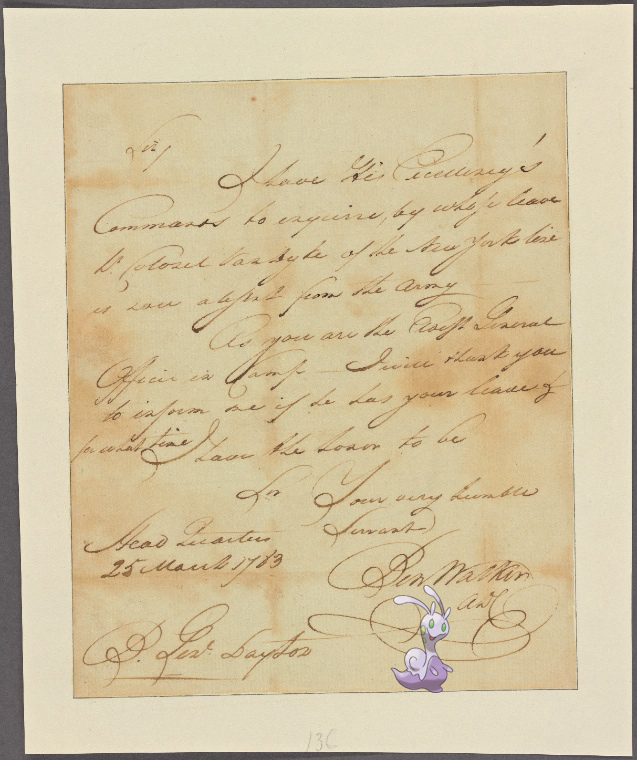 Sir,
I have His Excellency's
Commands to enquire, by whose leave
Lt. Colonel Vandyke of the New York line
is now absent from the Army
As you are the Eldest General
Officer in Camp – I will thank you
to inform me if he has your leave &
for what time I have the honor to be
Sir Your very humble
Servant
Head Quarters
25 March 1783
Ben Walker
ADC
B. Genl. Dayton